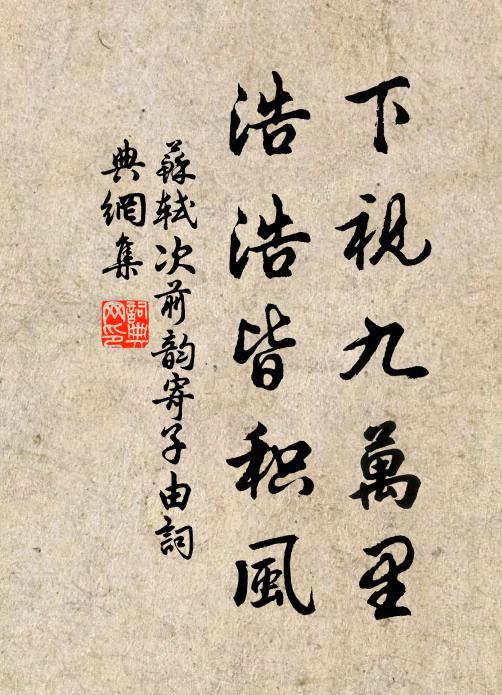 下視九萬里
浩浩皆积風
蘇軾次前韵寄子由詞
典網集
詞典
网印